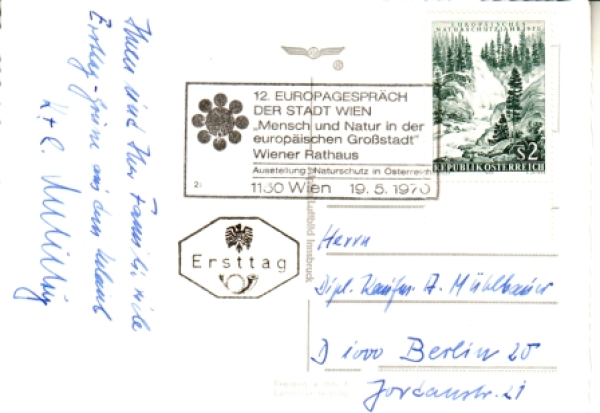 EUROPÄISCHES
NATURSCHUTZJAHR 1970
S2
REPUBLIK ÖSTERREICH
12. EUROPAGESPRÄCH
DER STADT WIEN
„Mensch und Natur in der
europäischen Großstadt"
Wiener Rathaus
Ausstellung: Naturschutz in Österreich
1130 Wien 19.5.1970
Ersttag
Ihnen und Ihrer Familie viele
Grüße aus dem Urlaub
Luftbild Innsbruck
Herrn
Dipl. Kaufm. A. Mühlbauer
D 1000 Berlin 20
Jordanstr. 21